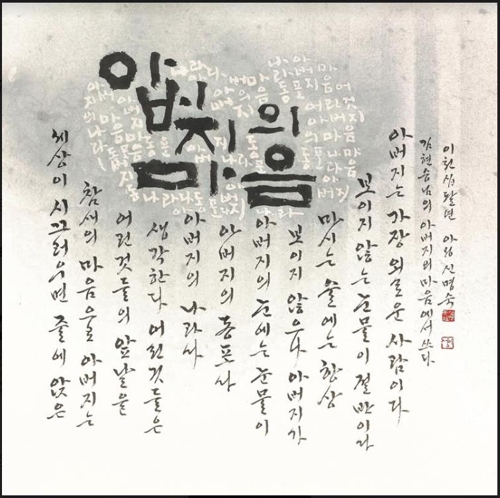 아버지의
마음
세상이 시끄러우면 줄에 앉은
참새의 마음으로 아버지는
어린것들의 앞날을
생각한다 어린것들은
아버지의 나라다
아버지의 동포다
아버지의 눈에는 눈물이
보이지 않으나 아버지가
마시는 술에는 항상
보이지 않는 눈물이 절반이다
아버지는 가장 외로운 사람이다
김현승님의 아버지의 마음에서 쓰다
신명숙